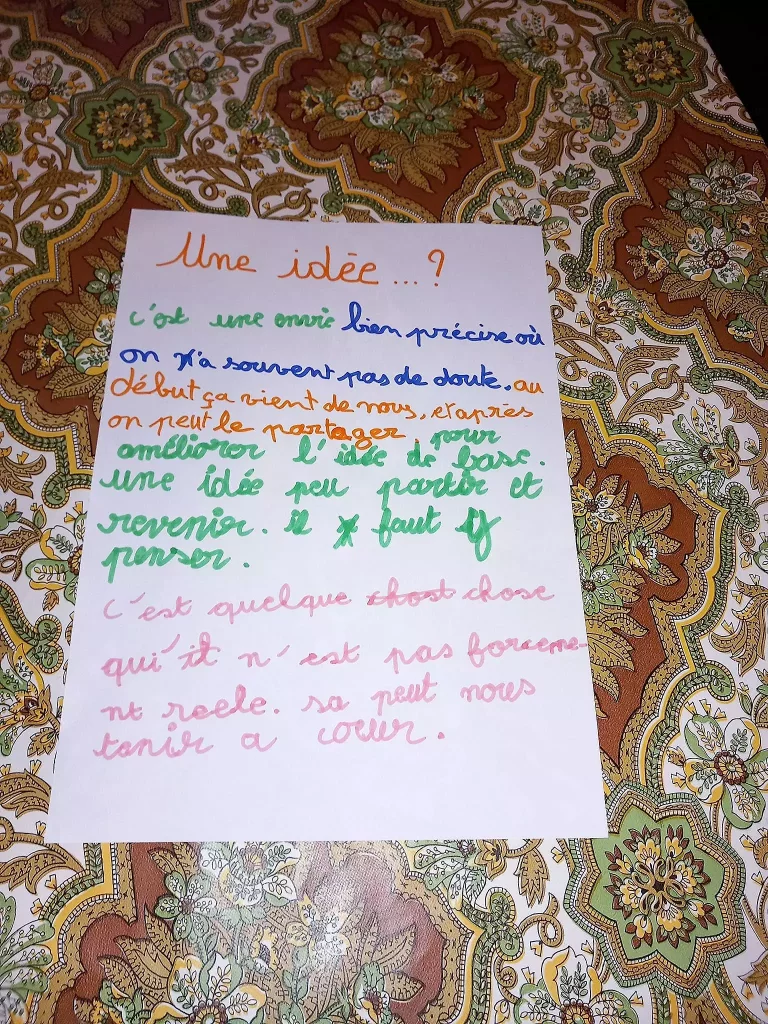 Une idée...?
c'est une envie bien précise où
on n'a souvent pas de doute. au
début ça vient de nous, et après
on peut le partager, pour
améliorer l'idée de base.
une idée peu partir et
revenir. il faut y
penser.
c'est quelque chost chose
qui'il n'est pas forceme-
nt reele. sa peut nous
tenir a coeur.